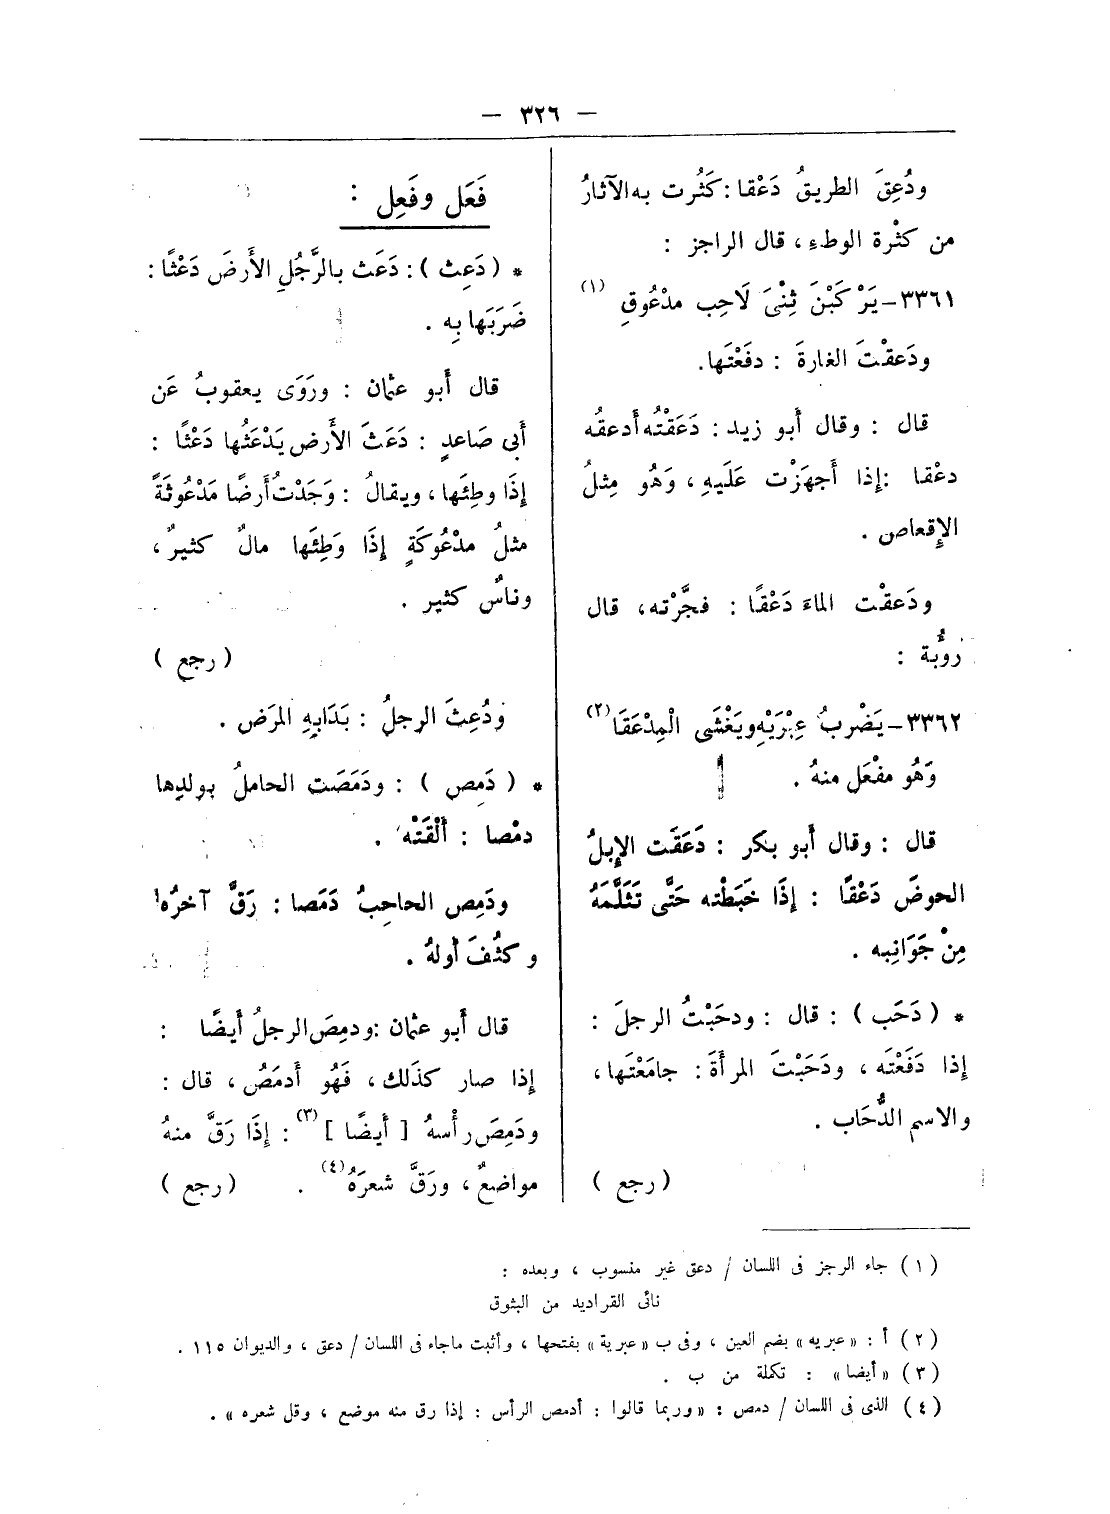 — ٣٢٦ —
ودُعِقَ الطريقُ دَعْقا : كَثُرت به الآثارُ
من كثْرة الوطءِ ، قال الراجز :
٣٣٦١ – يَرْ كَبْنَ ثِنْىَ لَاحِب مدْعُوقِ (١)
ودَعقْتَ الغارةَ : دفَعْتَها.
قال : وقال أَبو زيد : دَعَقْتُه أَدعقُه
دعْقا : إذا أَجهَزْت عَلَيهِ ، وَهُو مِثلُ
الإقعاص .
ودَعقْت الماءَ دَعْقًا : فجَّرْته ، قال
رؤبة :
٣٣٦٢ – يَضْربُ عِبْرَيْهِ ويَغْشَى الْمِدْعَقَا (٢)
وَهُو مفْعَل منهُ .
قال : وقال أَبو بكر : دَعَقَت الإبلُ
الحوضَ دَعْقًا : إذَا خَبَطْته حَتَّى تَثَلَّمَهُ
مِنْ جَوَانِبه .
* ( دَحَب ) : قال : ودحَبْتُ الرجلَ :
إذا دَفَعْتَه ، ودَحَبْتَ المرأَةَ : جامَعْتَها ،
والاسم الدُّحَاب .
( رجع )
فَعَل وفَعِل :
* ( دَعِث ) : دَعَث بالرَّجُلِ الأَرضَ دَعْثًا :
ضَرَبَها بِه .
قال أَبو عثمان : ورَوَى يعقوبُ عَن
أَبى صَاعدٍ : دَعَثَ الأَرض يَدْعَثُها دَعْثًا :
إذَا وطِئَها ، ويقالُ : وَجَدْتُ أَرضًا مَدْعُوثَةً
مثلُ مدْعُوكَةٍ إذَا وَطِئَها مالٌ كثيرٌ ،
وناسٌ كثير .
( رجع )
ودُعِثَ الرجلُ : بَدَابِهِ المرَض .
* ( دَمص ) : ودَمَصَت الحاملُ بولدِها
دمْصا : أَلْقَتْه .
ودَمِص الحاجبُ دَمَصا : رَقَّ آخرُه
وكثُفَ أولهُ .
قال أَبو عثمان : ودمِصَ الرجلُ أَيضًا :
إذا صار كذَلك ، فَهُو أَدمَصُ ، قال :
ودَمِصَ رأْسهُ [ أَيضًا ] (٣) : إذَا رَقَّ منهُ
مواضعُ ، ورَقَّ شعرَهُ (٤) . ( رجع )
( ١ ) جاء الرجز فى اللسان / دعق غير منسوب ، وبعده :
نائى القراديد من البثوق
( ٢ ) أ : « عبريه » بضم العين ، وفى ب « عبرية » بفتحها ، وأثبت ماجاء فى اللسان / دعق ، والديوان ١١٥ .
( ٣ ) « أيضا » : تكملة من ب .
( ٤ ) الذى فى اللسان / دمص : « وربما قالوا : أدمص الرأس : إذا رق منه موضع ، وقل شعره » .